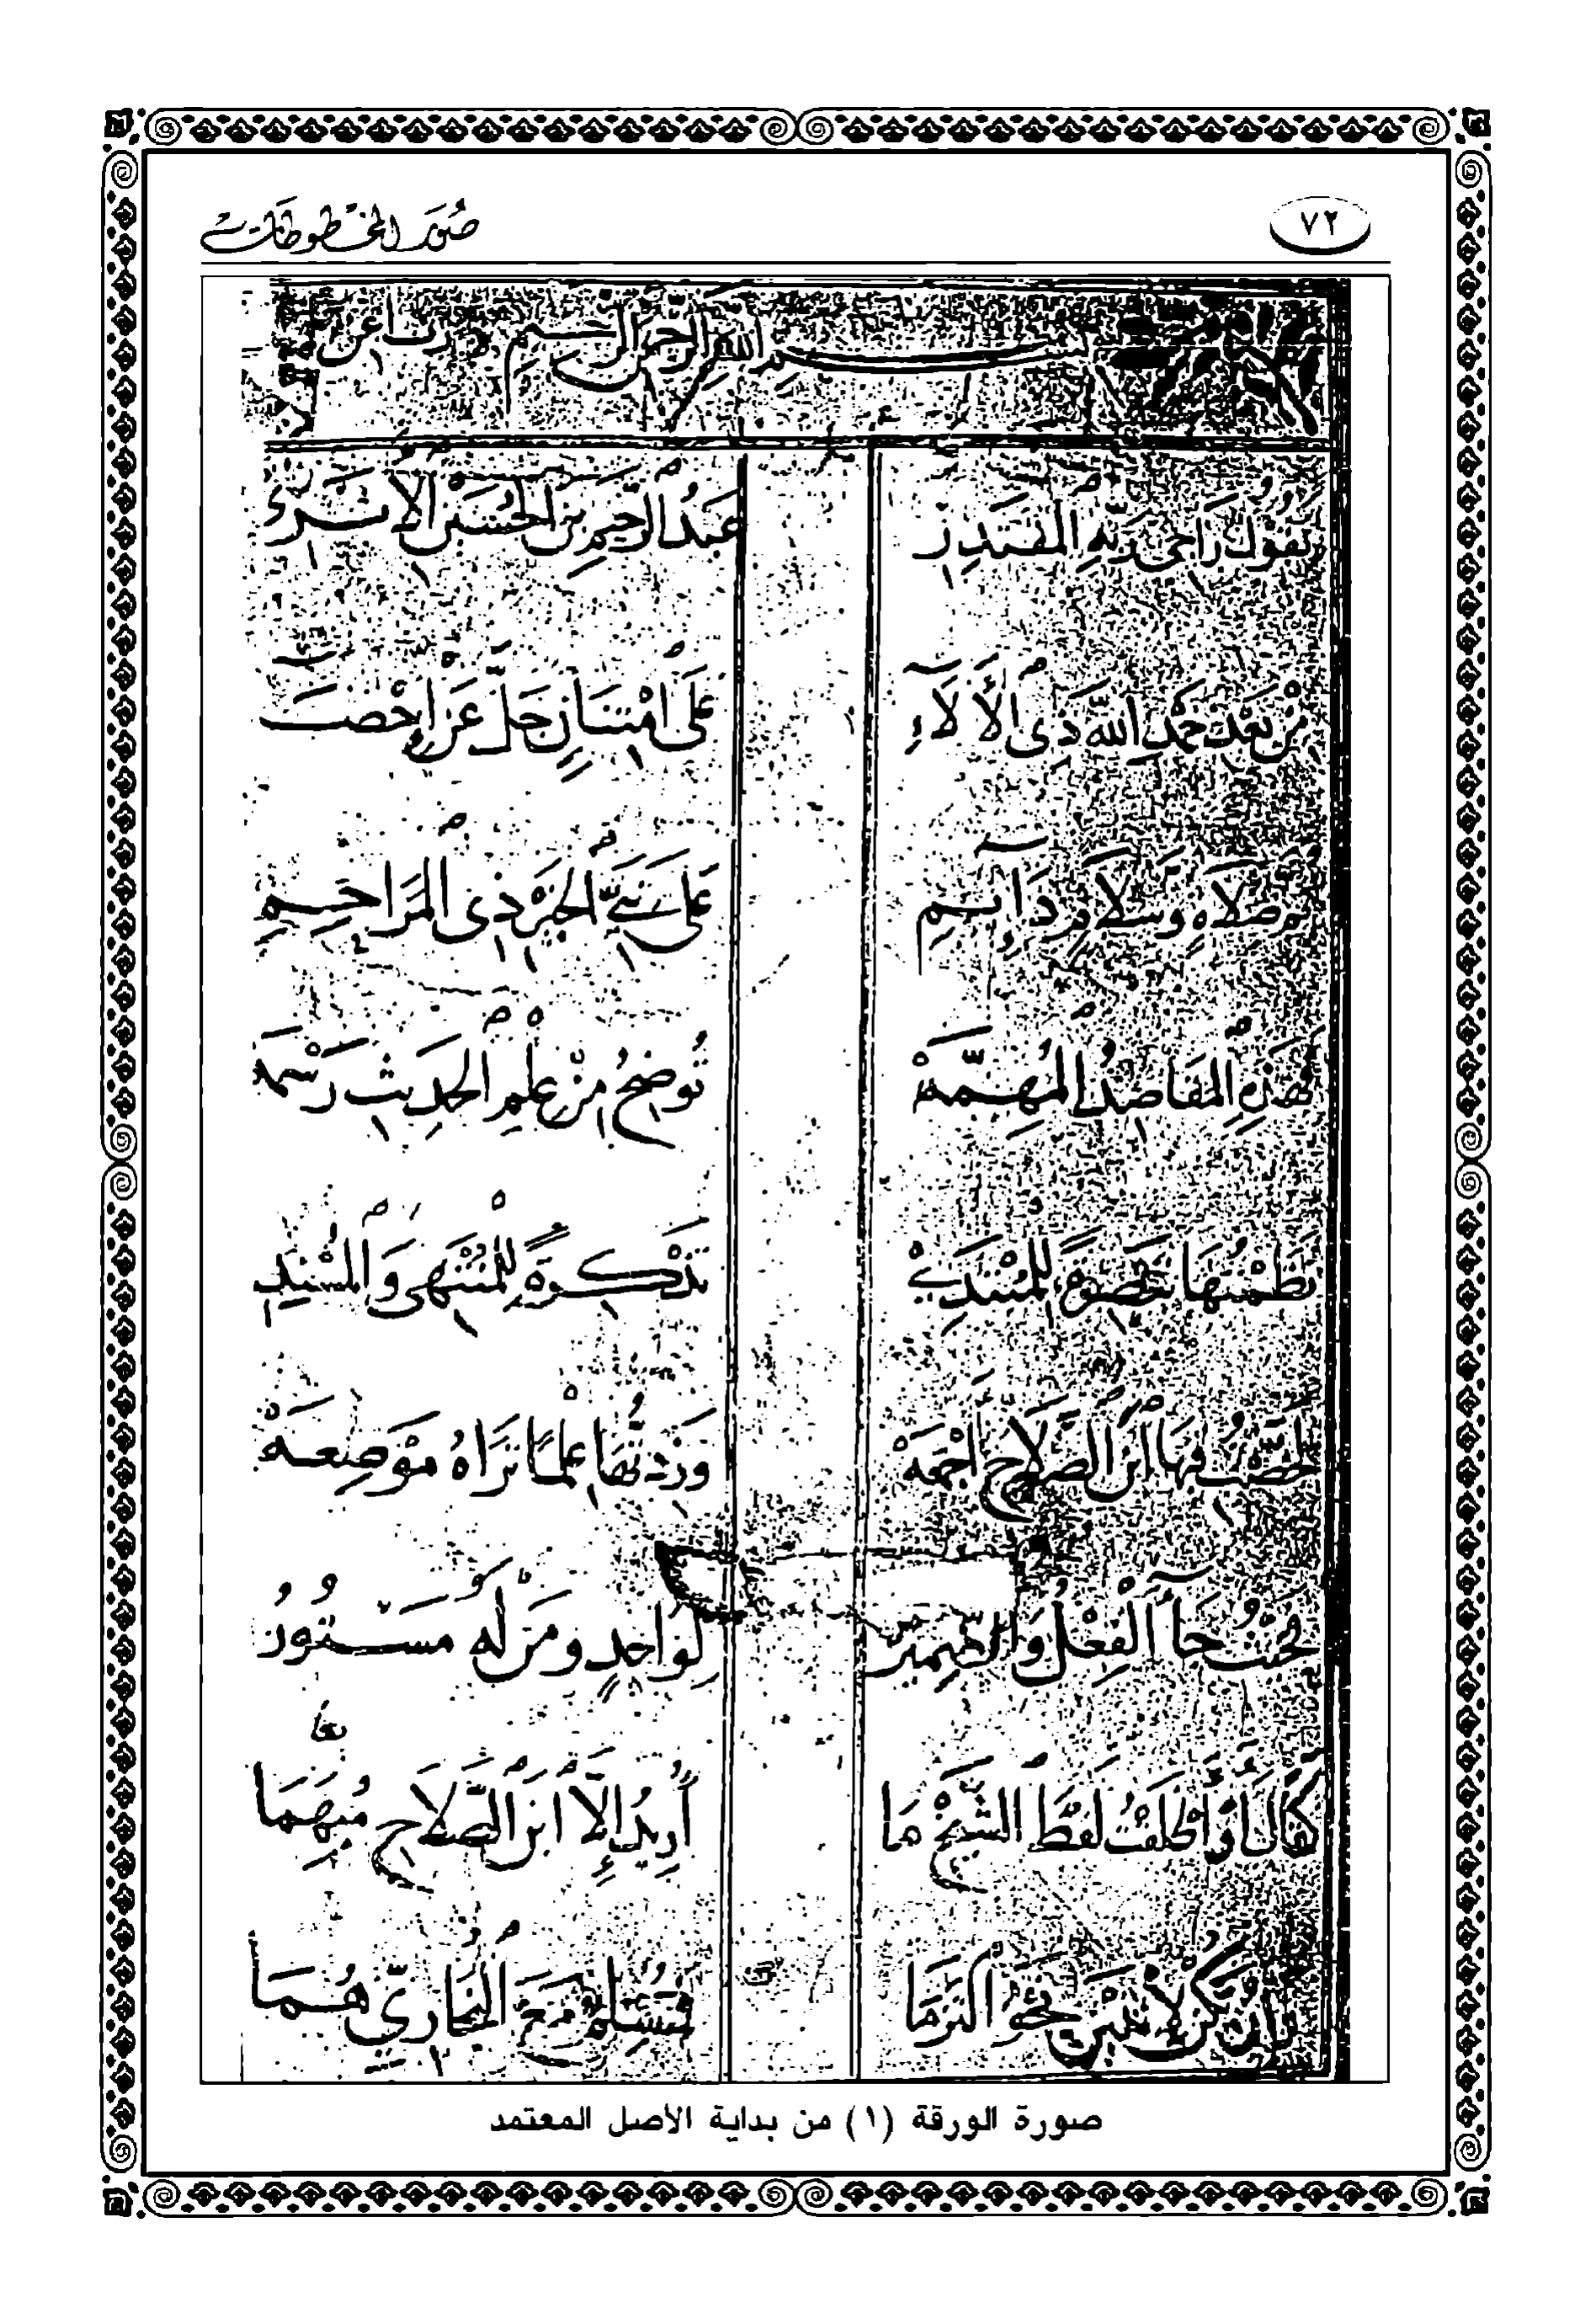 ٧٢
صُوَر المخطوطات
بسم الله الرحمن الرحيم رب أعن
يَقُولُ رَاجِي رَبِّهِ الْمُقْتَدِرِ عَبْدُ الرَّحِيمِ بْنُ الْحُسَيْنِ الْأَثَرِي
مِنْ بَعْدِ حَمْدِ اللهِ ذِي الْآلَاءِ عَلَى امْتِنَانٍ جَلَّ عَنْ إِحْصَاءِ
ثُمَّ صَلَاةٍ وَسَلَامٍ دَائِمِ عَلَى نَبِيِّ الْخَيْرِ ذِي الْمَرَاحِمِ
فَهَذِهِ الْمَقَاصِدُ الْمُهِمَّهْ تُوضِحُ مِنْ عِلْمِ الْحَدِيثِ رَسْمَهْ
نَظَمْتُهَا تَبْصِرَةً لِلْمُبْتَدِي تَذْكِرَةً لِلْمُنْتَهِي وَالْمُسْنِدِ
لَخَّصْتُ فِيهَا ابْنَ الصَّلَاحِ أَجْمَعَهْ وَزِدْتُهَا عِلْمًا تَرَاهُ مَوْضِعَهْ
فَحَيْثُ جَاءَ الْفِعْلُ وَالضَّمِيرُ لِوَاحِدٍ وَمَنْ لَهُ مَسْتُورُ
كَقَالَ أَوْ أَطْلَقْتُ لَفْظَ الشَّيْخِ مَا أُرِيدُ إِلَّا ابْنَ الصَّلَاحِ مُبْهَمَا
وَإِنْ يَكُنْ لِاثْنَيْنِ نَحْوُ الْتَزَمَا فَمُسْلِمٌ مَعَ الْبُخَارِيِّ هُمَا
صورة الورقة (١) من بداية الأصل المعتمد